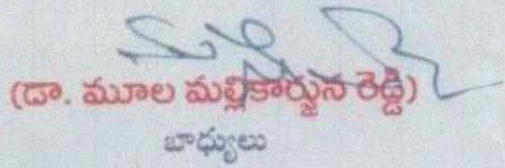 (డా. మూల మల్లికార్జున రెడ్డి)
బాధ్యులు